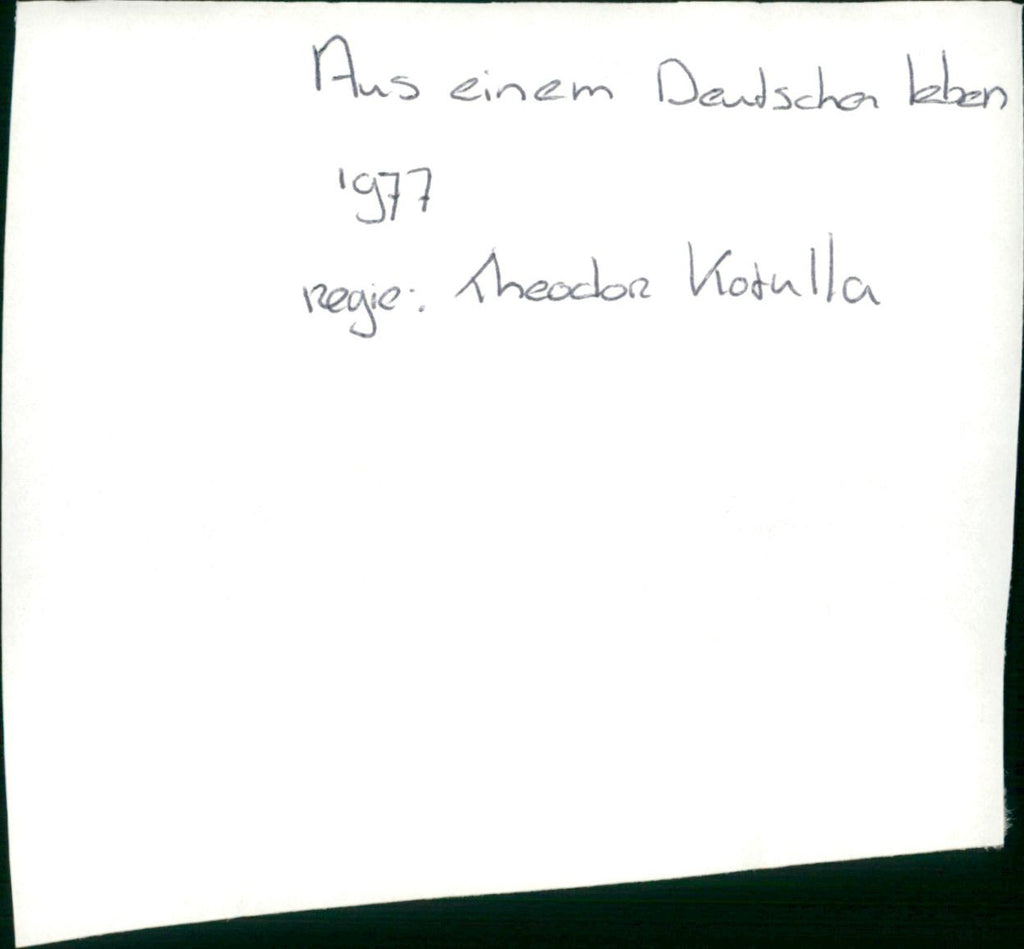 Aus einem Deutschen leben
1977
regie: Theodor Kotulla